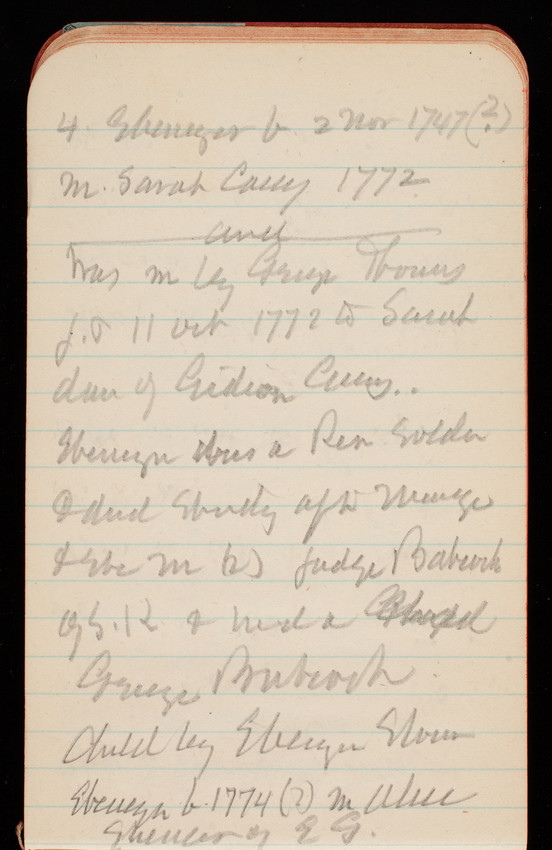 4. Ebenezer b. 2 Nov 1747(?)
m. Sarah Casey 1772
and
Was m by George Thomas
J.P 11 Oct 1772 to Sarah
dau of Gideon Casey..
Ebenezer was a Rev Soldier
& died Shortly after Marriage
& She m (2) Judge Babcock
of S.K & had a
George Babcock
Child by Ebenezer
Ebenezer b. 1774 (?) m Alice
of E G.